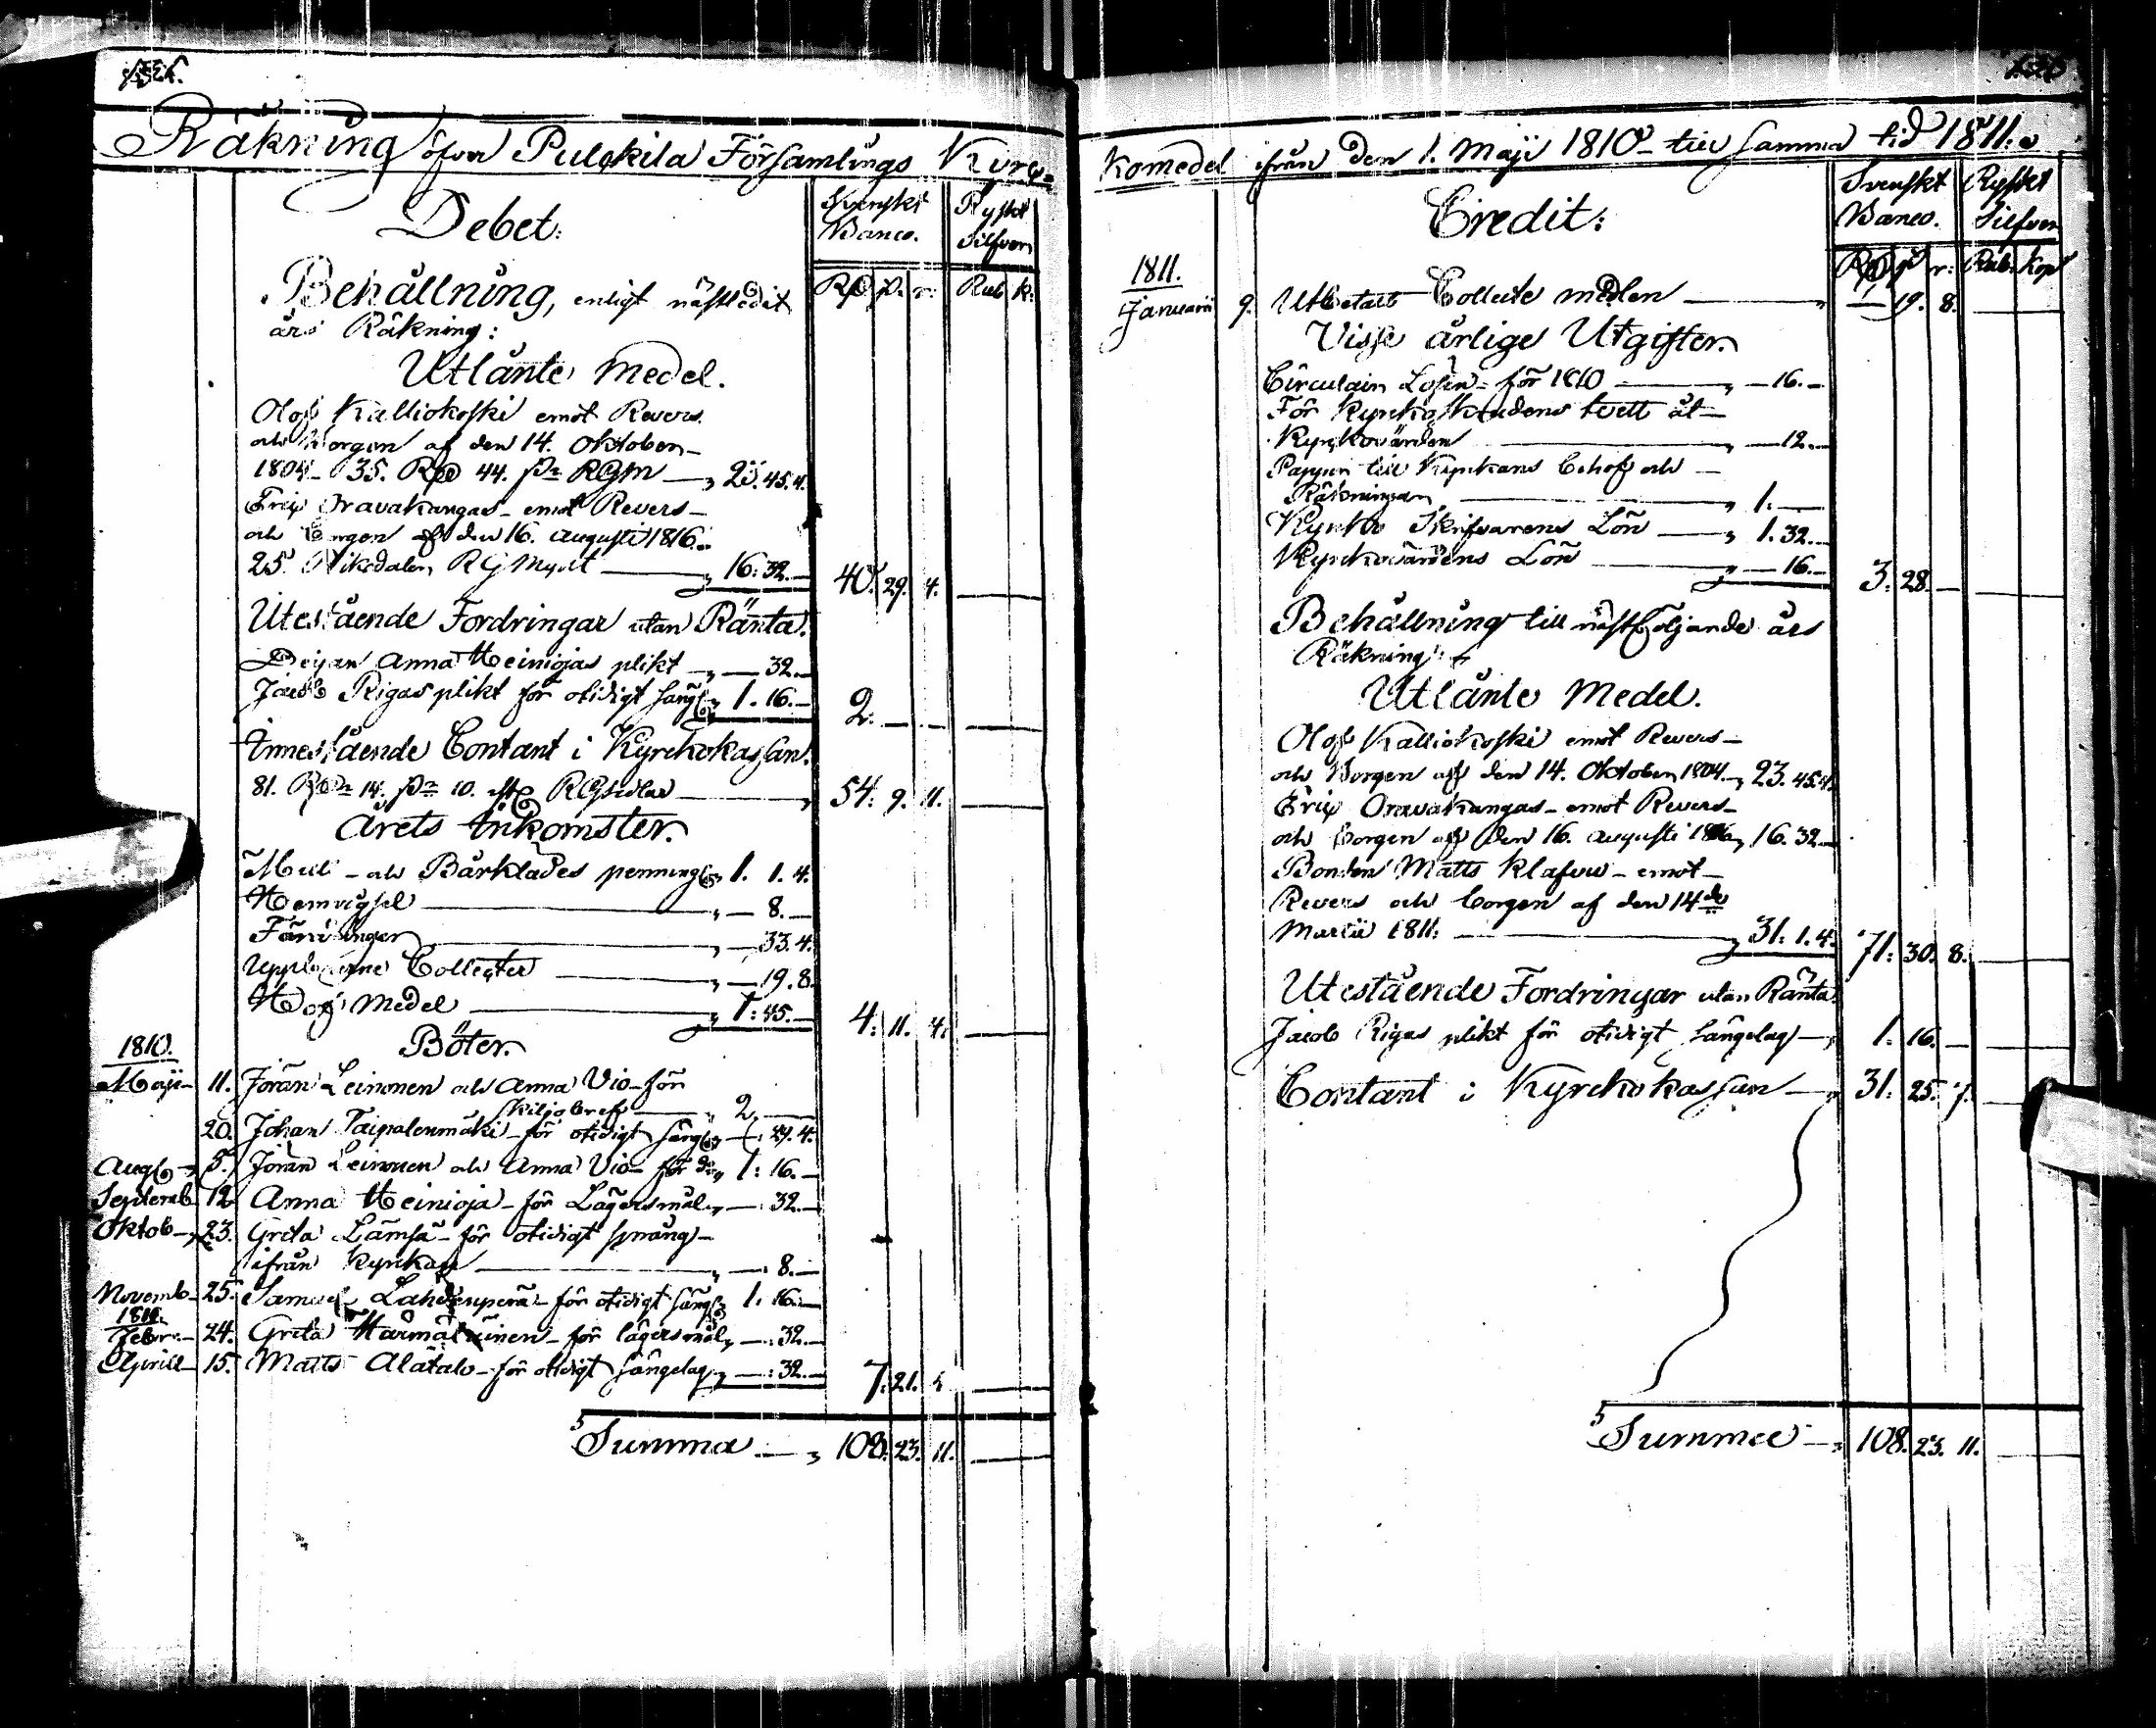 Räkning öfver Pulckila Församlings Kyrc-
Debet:
Svenskt Banco.
Ryskt Silfver
Rd ß: r: Rub k:
Behållning, enligt nästledit
års Räkning:
Utlånte Medel.
Olof Kalliokoski emot Revers
och Borgen af den 14. Oktober
1804 – 35. Rd 44. ß RGM — " 23. 45. 4.
Eric Oravakangas – emot Revers –
och Borgen af den 16. Augusti 1806.
25. Riksdaler RGMynt — " 16: 32. — 40. 29. 4.
Utestående Fordringar utan Ränta.
Pigan Anna Heiniojas plikt — " — 32. —
Jacob Rigas plikt för otidigt säng " 1. 16. — 2. — —
Innestående Contant i Kyrckokassan.
81. Rd 14. ß 10. RGsedlar — " 54. 9. 11.
Årets Inkomster.
Mull – och Bårklädes penning " 1. 1. 4.
Hemvigsel — " — 8. —
— " — 33. 4.
Collecter — " — 19. 8.
Håf Medel — " 1: 45. — 4. 11. 4.
Böter.
1810.
Maji – 11. Jöran Leinonen och Anna Vio – för
skiljobref — " 2. —
20. Johan Taipalenmäki – för otidigt säng " —: 29. 4.
Aug 5. Jöran Leinonen och Anna Vio – för do " 1: 16. —
Septemb 12. Anna Heinioja – för Lägersmål " — 32. —
Oktob – 23. Greta Lämsä – för otidigt språng –
ifrån Kyrkan — " — 8. —
Novemb – 25. Samuel Lahdenperä – för otidigt säng 1. 16. —
1811.
Febr: – 24. Greta – för lägersmål " —: 32. —
Aprill – 15. Matts Alatalo – för otidigt sängelag " —: 32. — 7: 21. 4.
Summa — " 108. 23. 11.
komedel ifrån den 1. Maji 1810 – till samma tid 1811.
Credit:
Svenskt Banco.
Ryskt Silfver
Rd ß r: Rub. Kop
1811.
Januarii 9. Utbetalt Collecte medlen — " — 19. 8.
Visse årlige Utgifter.
Circulair Lösen – för 1810 — " — 16. —
För Kyrckoskrudens tvett åt –
Kyrckovärden — " — 12. —
Papper till Kyrckans behof och –
Räkningar — " 1. —
Kyrcko Skrifvarens Lön — " 1. 32. —
Kyrckovärdens Lön — " — 16. — 3. 28. —
Behållning till nästföljande års
Räkning:
Utlånte Medel.
Olof Kalliokoski emot Revers –
och Borgen af den 14. Oktober 1804. – " 23. 45. 4.
Eric Oravakangas – emot Revers –
och Borgen af den 16. Augusti 1806 " 16. 32. —
Bonden Matts Klafvu – emot –
Revers och Borgen af den 14de
Martii 1811. — " 31: 1. 4. 71: 30. 8.
Utestående Fordringar utan Ränta.
Jacob Rigas plikt för otidigt sängelag — " 1. 16. —
Contant i Kyrckokassan — " 31: 25. 7.
Summa — " 108. 23. 11.